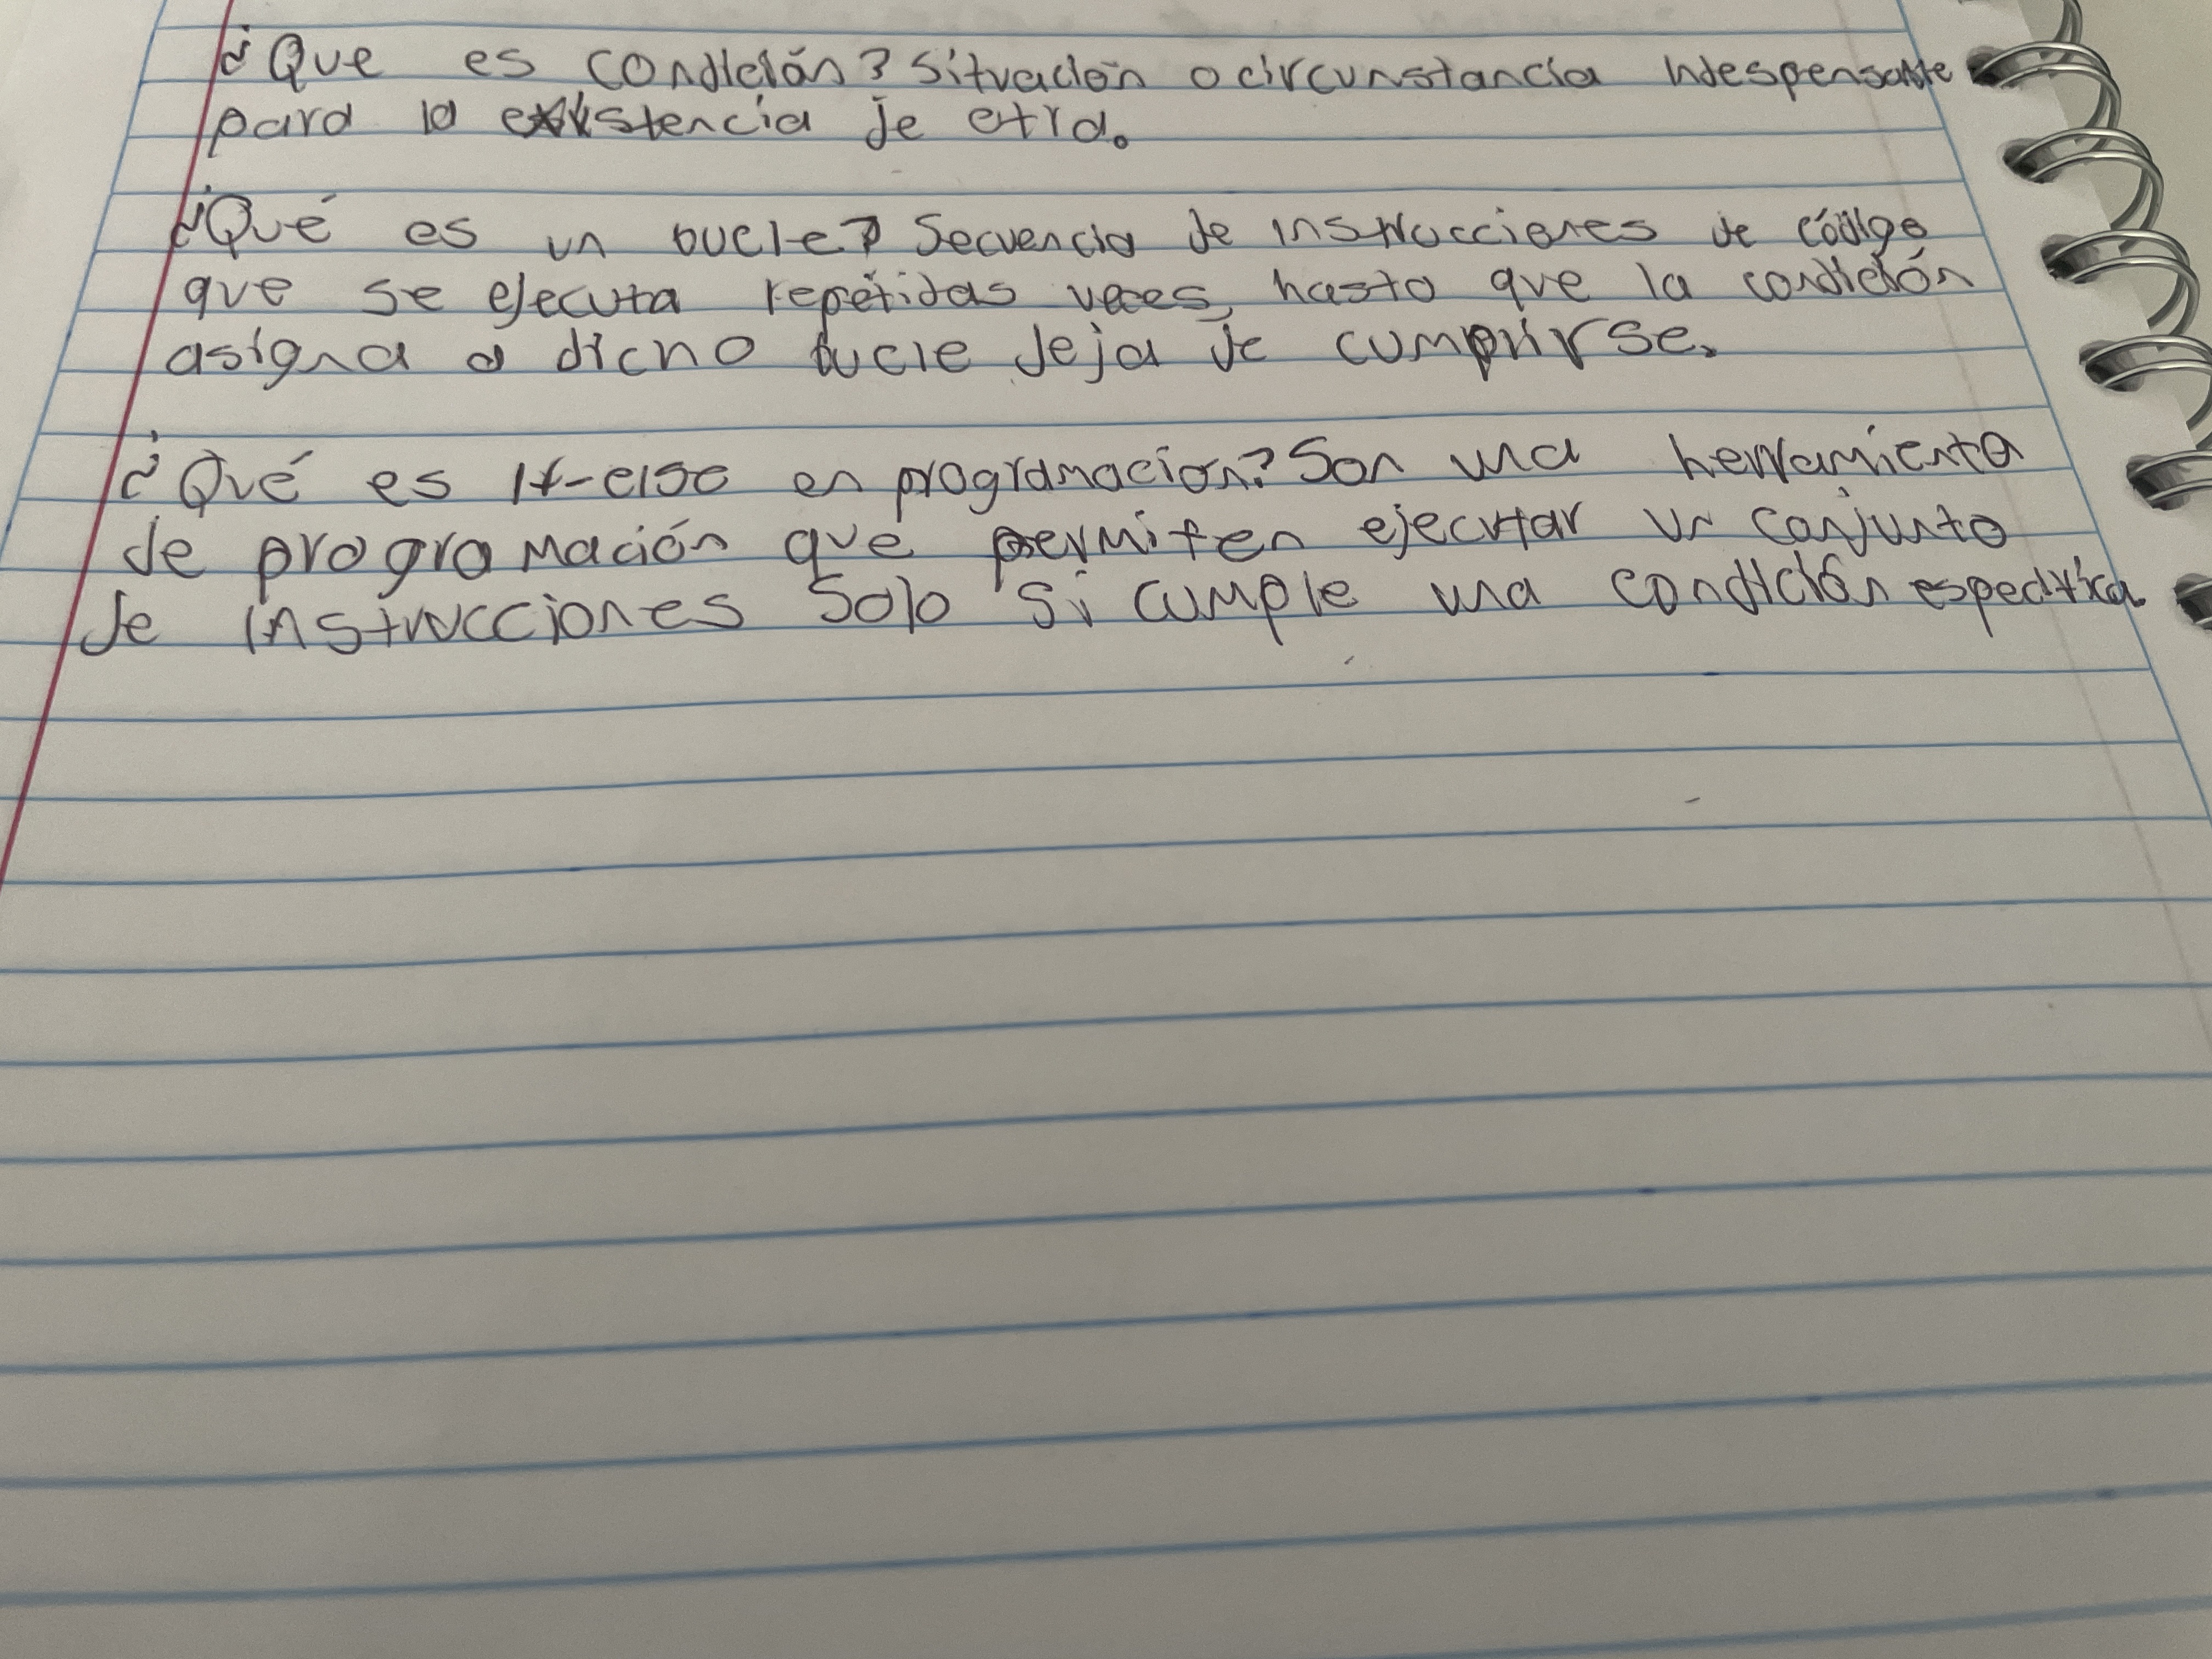 ¿Que es condición? Situación o circunstancia indespensable
para la existencia de otra.
¿Qué es un bucle? Secuencia de instrucciones de código
que se ejecuta repetidas veces, hasta que la condición
asigna a dicho bucle deja de cumplirse.
¿Qué es If-else en programación? Son una herramienta
de programación que permiten ejecutar un conjunto
de instrucciones solo si cumple una condición especifica.